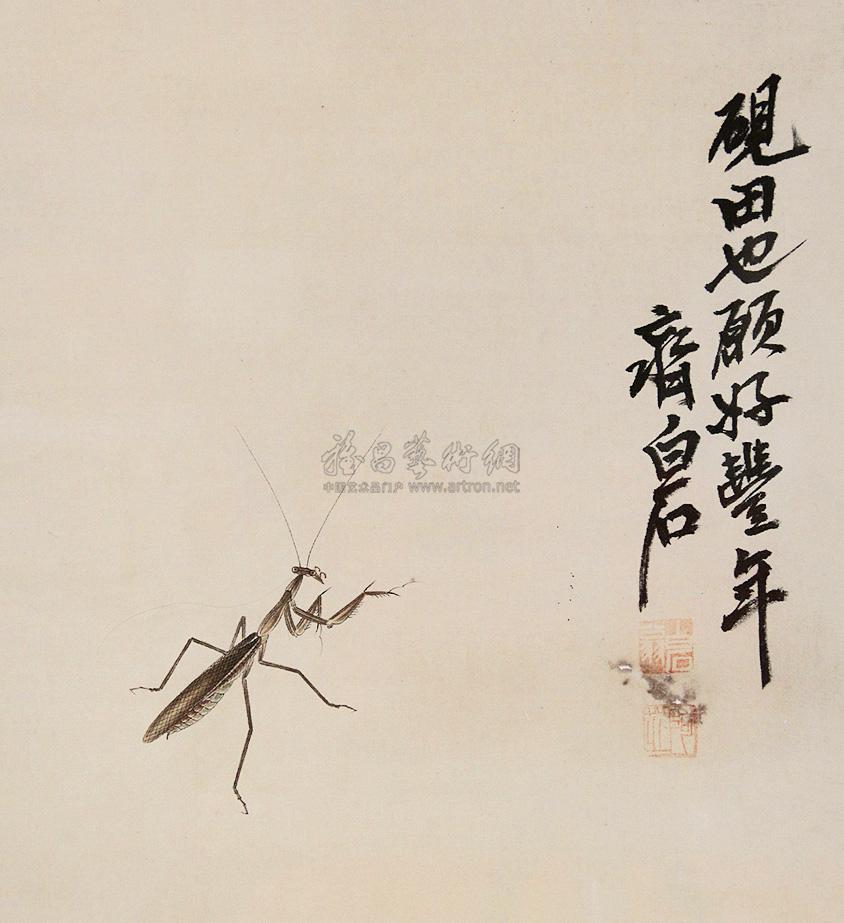 砚田也願好豐年
齊白石
雅昌藝術網
中国艺术品门户 www.artron.net